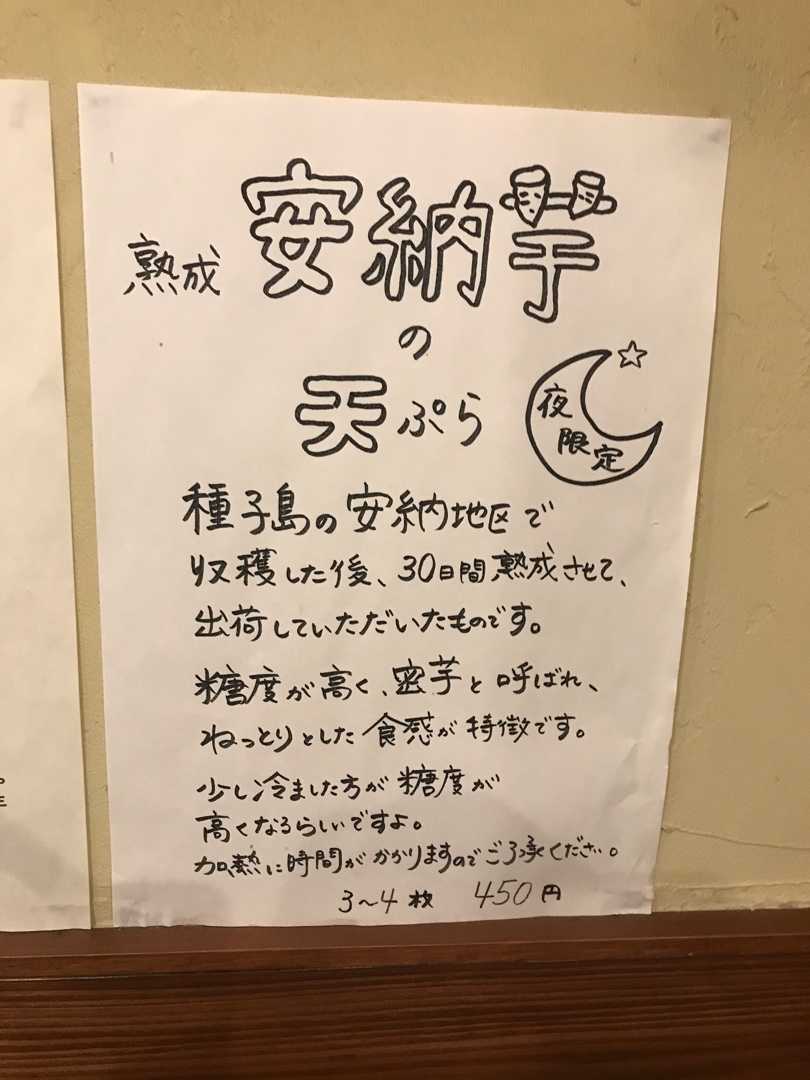 熟成 安納芋
の
天ぷら
夜
限定
種子島の安納地区で
収穫した後、30日間熟成させて、
出荷していただいたものです。
糖度が高く、密芋と呼ばれ、
ねっとりとした食感が特徴です。
少し冷ました方が糖度が
高くなるらしいですよ。
加熱に時間がかかりますのでご了承ください。
3～4枚 450円